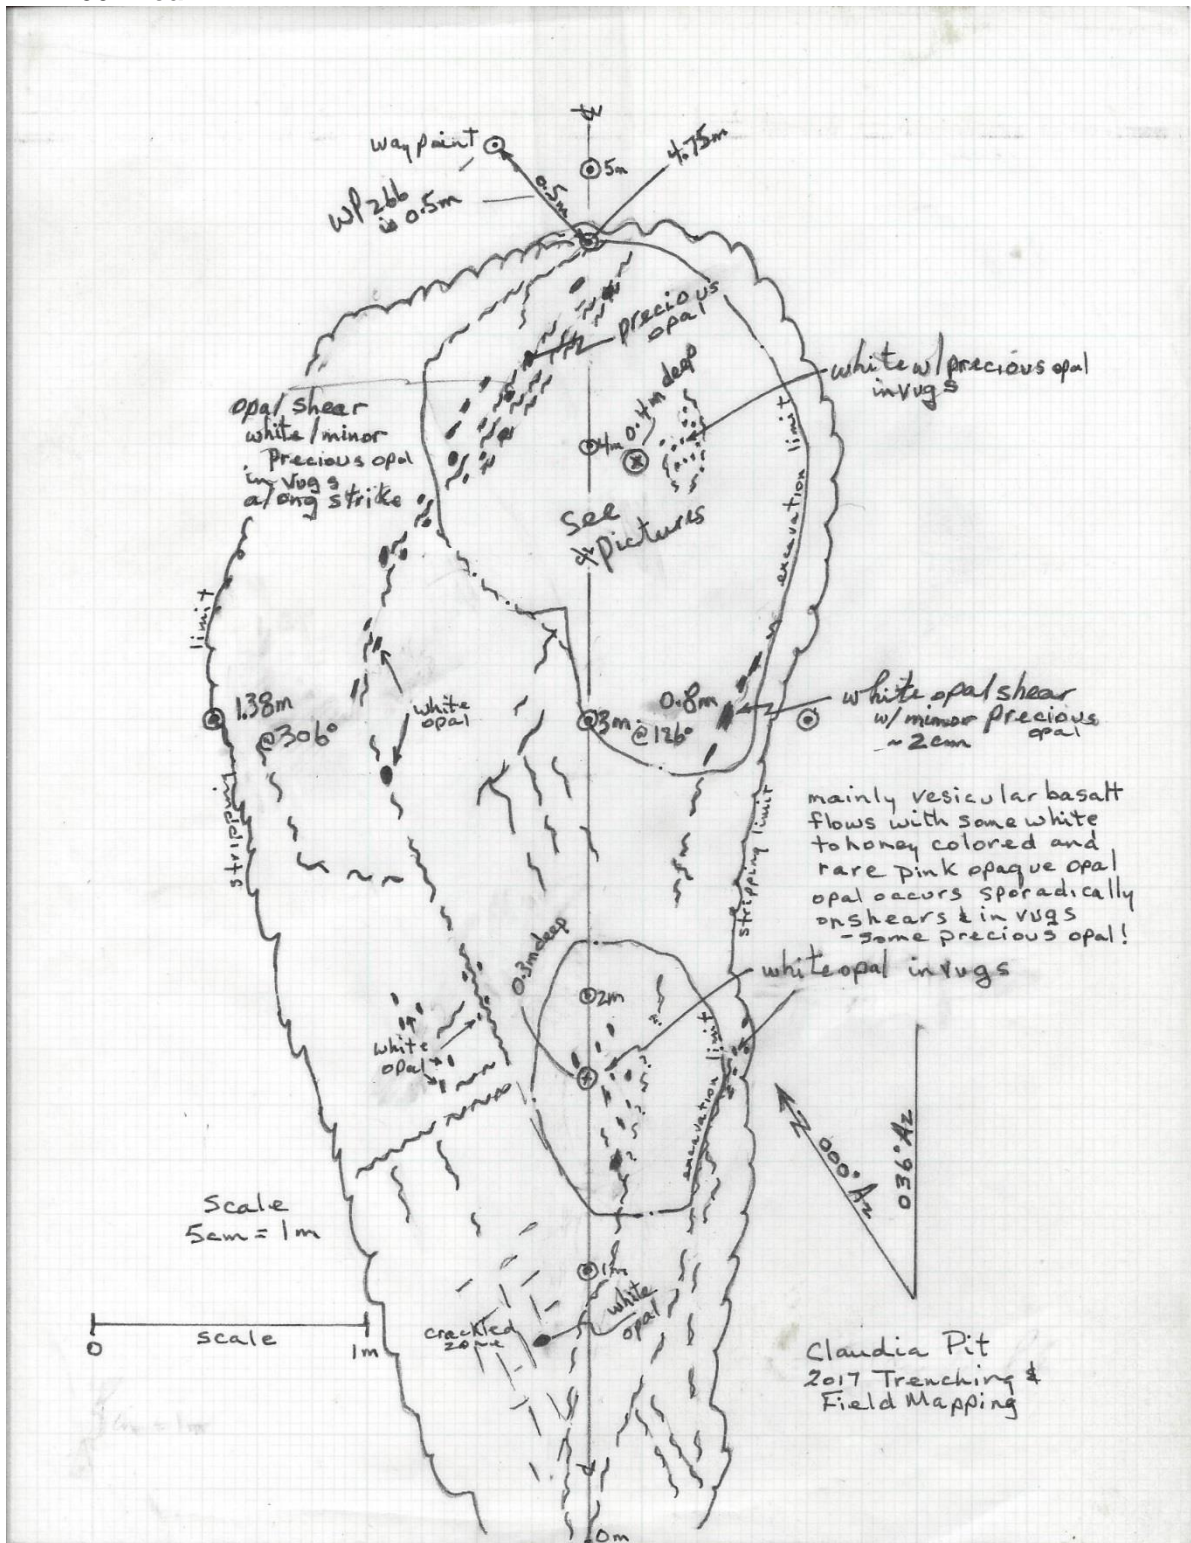 waypoint
5m
4.75m
0.5m
WP266
is 0.5m
precious
opal
white w/ precious opal
in vugs
opal shear
white/minor
Precious opal
in vugs
along strike
4m
0.4m deep
See
pictures
excavation limit
limit
1.38m
@306°
white
opal
0.8m
3m
@126°
white opal shear
w/ minor Precious
opal
~2cm
stripping
stripping limit
mainly vesicular basalt
flows with some white
to honey colored and
rare pink opaque opal
opal occurs sporadically
on shears & in vugs
- some precious opal!
0.3m deep
white opal in vugs
2m
white
opal
excavation limit
000° Az
036° Az
Scale
5cm = 1m
1m
white
opal
crackled
zone
scale
0
1m
Claudia Pit
2017 Trenching &
Field Mapping
0m